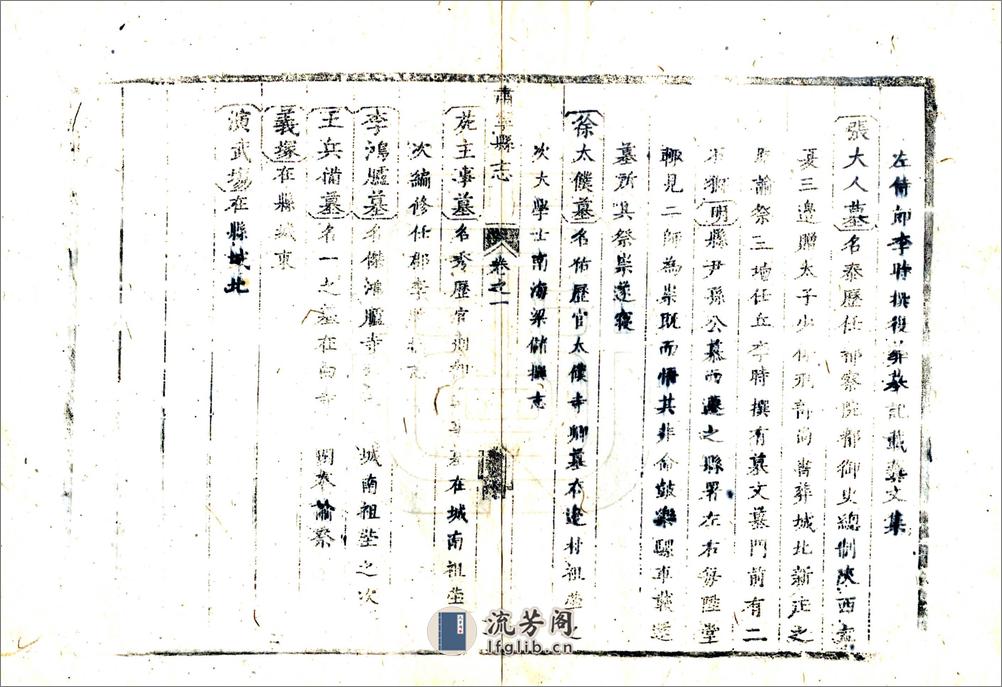 左侍郎李時撰後葬墓記載文集
張大人墓名泰歷任都察院都御史總制陝西
三邊贈太子少保刑部尚書葬城北新庄之
諭祭三壇任丘李時撰有墓文墓門前有二
明縣尹孫公慕而遷之縣署左右每陞堂
輙見二師為祟既而悟其非命鼓樂騾車載送
墓所具祭祟遂寢
徐太僕墓名佑歷官太僕寺卿墓在達村祖塋之
次大學士南海梁儲撰志
蕭寧縣志
卷之一
主事墓名秀歷官墓在城南祖塋
次編修任郡李
李鴻臚墓名傑鴻臚寺城南祖塋之次
王兵備墓名一之墓在南
義塚在縣城東
演武場在縣城北
流芳阁
lfglib.cn